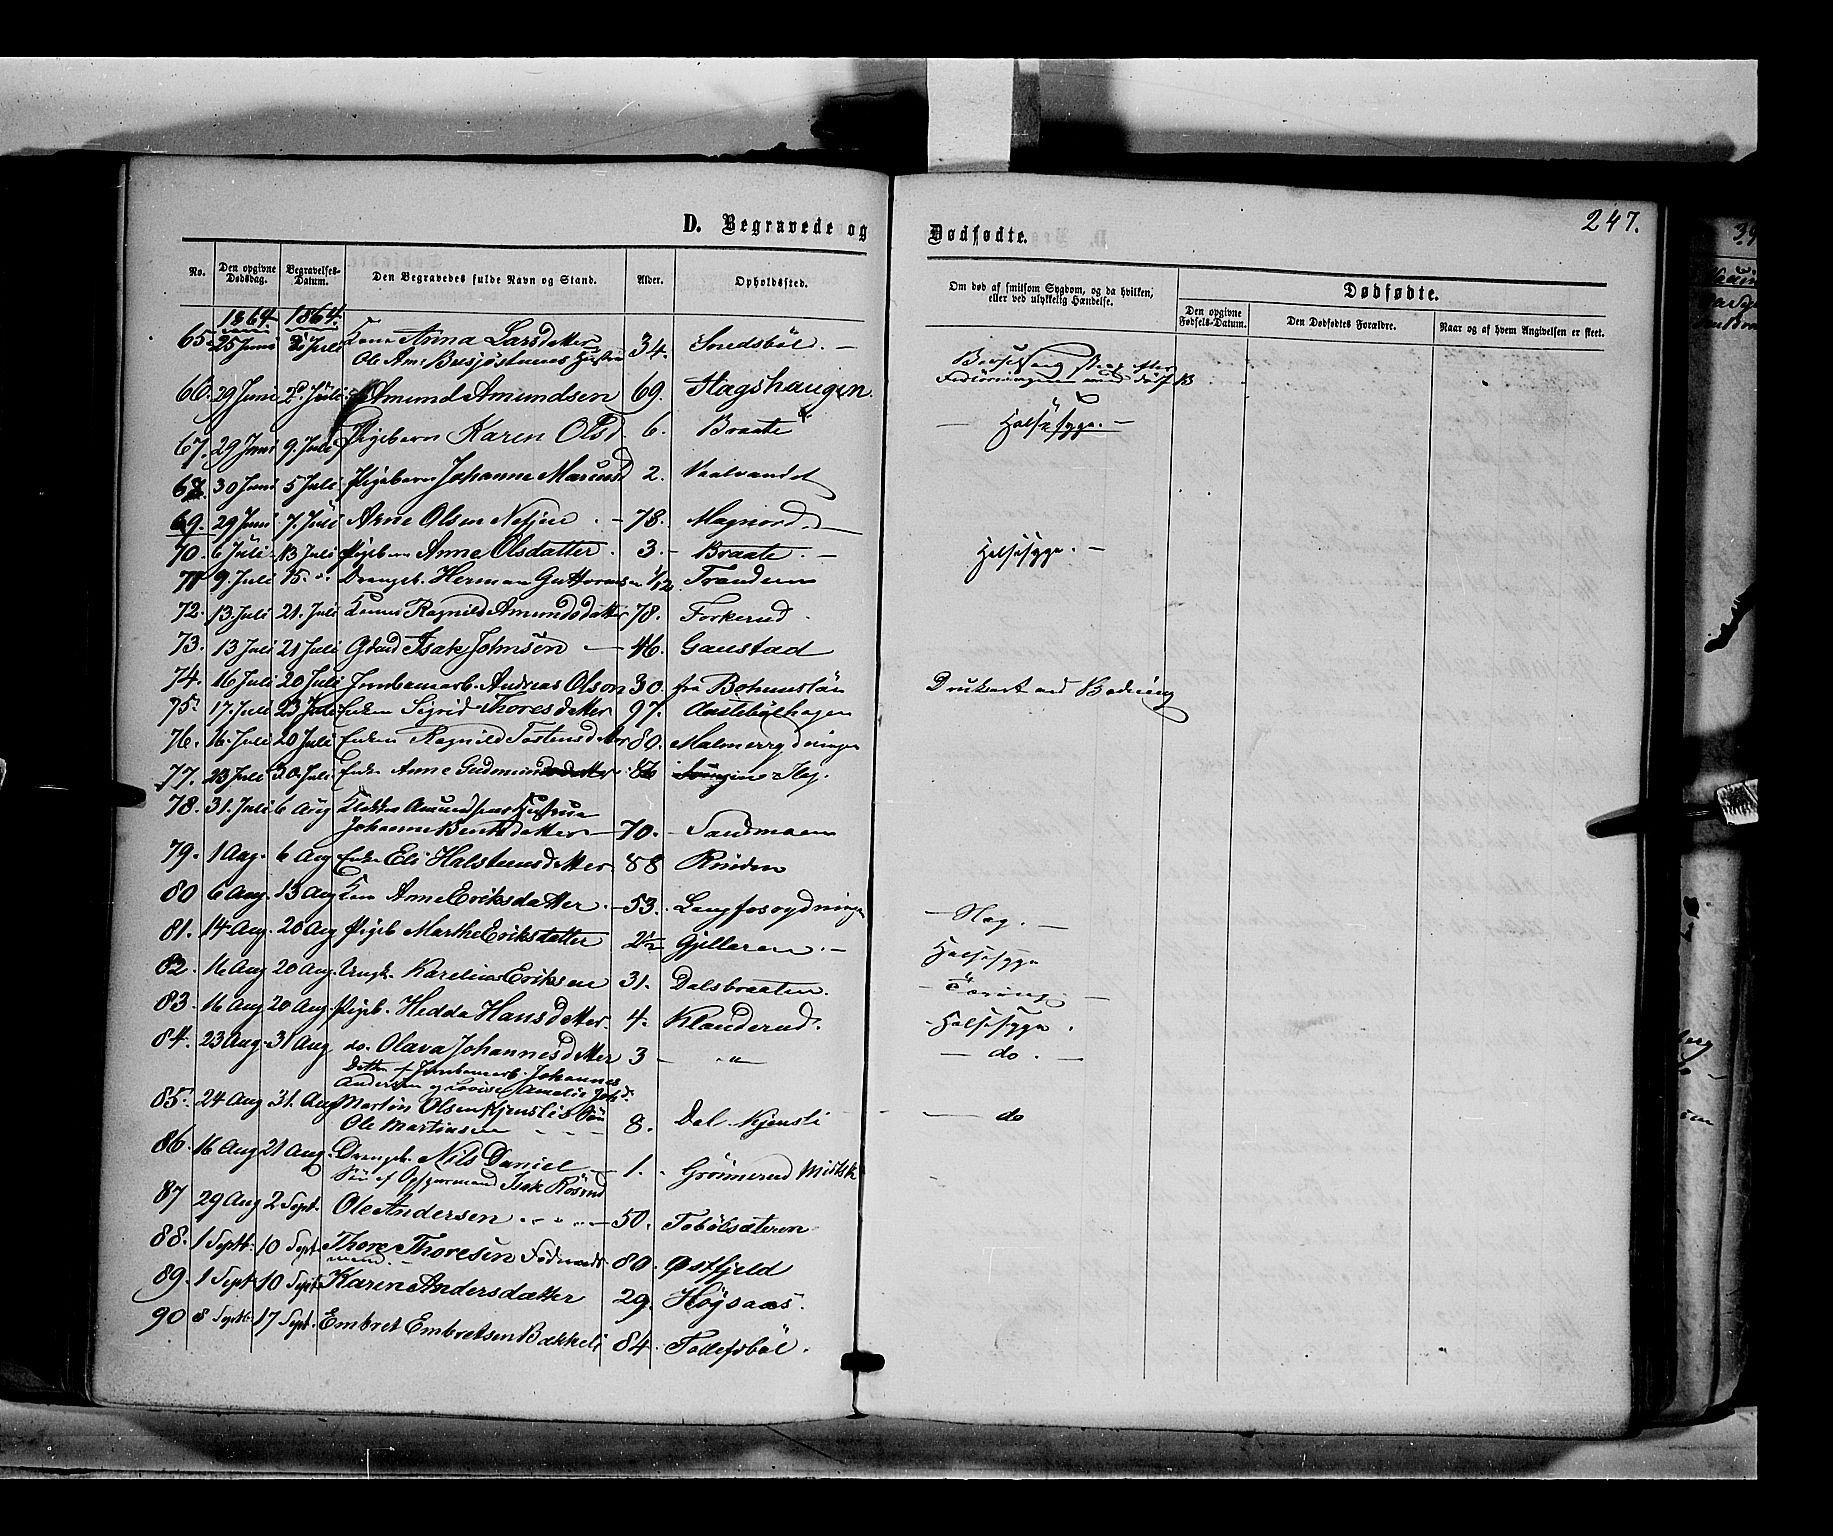 D. Begravede og Dødfødte.
247.
No. Den opgivne Dødsdag. Begravelses-Datum. Den Begravedes fulde Navn og Stand. Alder. Opholdssted. Om død af smitsom Sygdom, og da hvilken, eller ved ulykkelig Hændelse. Dødfødte.
Den opgivne Fødsels-Datum. Den Dødfødtes Forældre. Naar og af hvem Angivelsen er skeet.
1864 1864.
65. 25 Juni 2 Juli Kone Anna Larsdatter
Ole Am: 34.
66. 29 Juni 2d Juli Amund Amundsen 69. Hagshaugen
67. 29 Juni 9. Juli Pigebarn Karen Olsd. 6. Braate — Halsesyge. —
68. 30 Juni 5 Juli Pigebarn Johanne Mariusd 2. Vaalvandet
69. 29 Juni 7. Juli Arne Olsen — 78. Magnord
70. 6 Juli 13 Juli Pigebarn Anne Olsdatter. 3. Braate. — Halsesyge. —
71 9. Juli 15. Drengeb. Herman Guttormsen 1/12 Trandem
72. 13. Juli 21. Juli Ragnild Amundsdatter 78. Forkerud
73. 13 Juli 21 Juli Isak Johnsen — 46. Gaustad
74. 16 Juli 20 Juli Jernbanearb. Andreas Olson 30. fra Bohuslän Druknet ved Badning
75. 17. Juli 23 Juli Enken Sigrid Thoresdatter 97.
76. 16. Juli 20 Juli Enken Ragnild Tostensdatter 80. Malmerrydningen
77. 23 Juli 30. Juli Enke Anne
78. 31. Juli 6 Aug Klokker Amundsens Hustrue
Johanne Bentsdatter — 70. Sandmoen
79. 1 Aug. 6 Aug Enke Eli Halstensdatter 88
80 6 Aug. 13 Aug Kone Anne Eriksdatter — 53. Langfosrydningen — Slag. —
81. 14 Aug. 20 Aug Pigeb Marthe Eriksdatter 2 1/2 Gjilleren. — Halsesyge
82. 16 Aug 20 Aug. Ungk. Karelius Eriksen 31. Dalsbraaten. — Tæring —
83. 16 Aug 20 Aug. Pigeb. Hedda Hansdatter. 4. Klanderud. Halsesyge.
84. 23 Aug. 31 Aug do. Olava Johannesdatter 3 — " — — do. —
Datter af Jernbanearb. Johannes
Andersen og Lovise Amalie
85. 24 Aug 31. Aug Martin Olsen Kjenslis Søn
Ole Martinsen 8. Dal. Kjensli — do
86. 16 Aug 21 Aug. Drengeb. Nils Daniel — 1. Grønnerud
Søn af Isak
87 29 Aug 2 Sept. Ole Andersen — 50. Tobølsæteren
88. 1 Septb. 10 Sept. Thore Thoresen Føderaads
mand. — 80. Østfjeld
89. 1 Sept 10 Sept Karen Andersdatter 29. Høgsaas.
90 8 Septb. 17 Sept. Embret Embretsen Bakkeli 84.